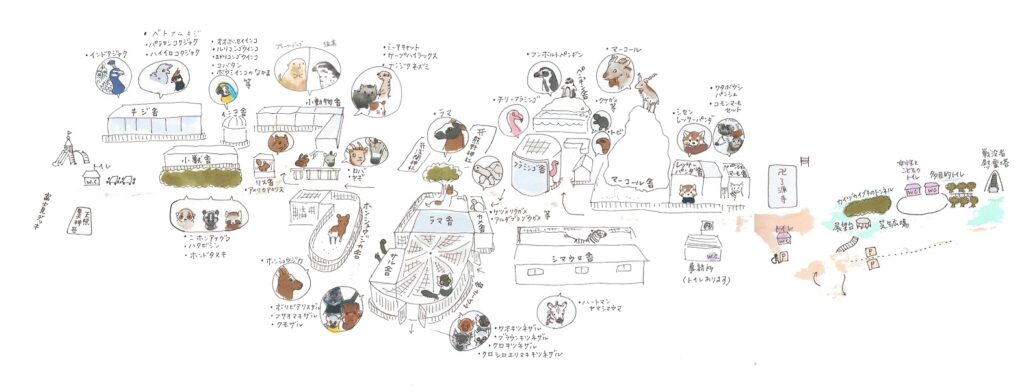 ・インドクジャク
・ベトナムキジ
・パラワンコクジャク
・ハイイロコクジャク
・オオハナインコ
・ルリコンゴウインコ
・コバタン
・ボウシインコのなかま
等
・ミーアキャット
・ケープハイラックス
・フンボルトペンギン
・マーコール
・チリーフラミンゴ
・ラマ
クサガメ
等
・トビ
・シセン
レッサーパンダ
・ワタボウシ
パンシェ
・コモンマーモ
セット
キジ舎
インコ舎
小動物舎
ペンギン舎
小獣舎
リス舎
・アメリカアカリス
・ロバ
・ヤギ
フラミンゴ舎
マーコール舎
レッサー
パンダ舎
トイレ
W.C
・ニホンアナグマ
・ハクビシン
・ホンドタヌキ
ホンシュウジカ舎
・ホンシュウジカ
ラマ舎
カメ舎
サル舎
キツネザル舎
・ケヅメリクガメ
・アルダブラゾウガメ
シマウマ舎
・ハートマン
ヤマシマウマ
・ボリビアリスザル
・フサオマキザル
・クモザル
・ワオキツネザル
・ブラウンキツネザル
・クロキツネザル
・クロシロエリマキキツネザル
事務所
(トイレあります)
トイレ
カイヅカイブキのトンネル
展望台
芝生広場
女性と
こども
トイレ
多目的トイレ
WC
戦没者
慰霊塔
P
P
P